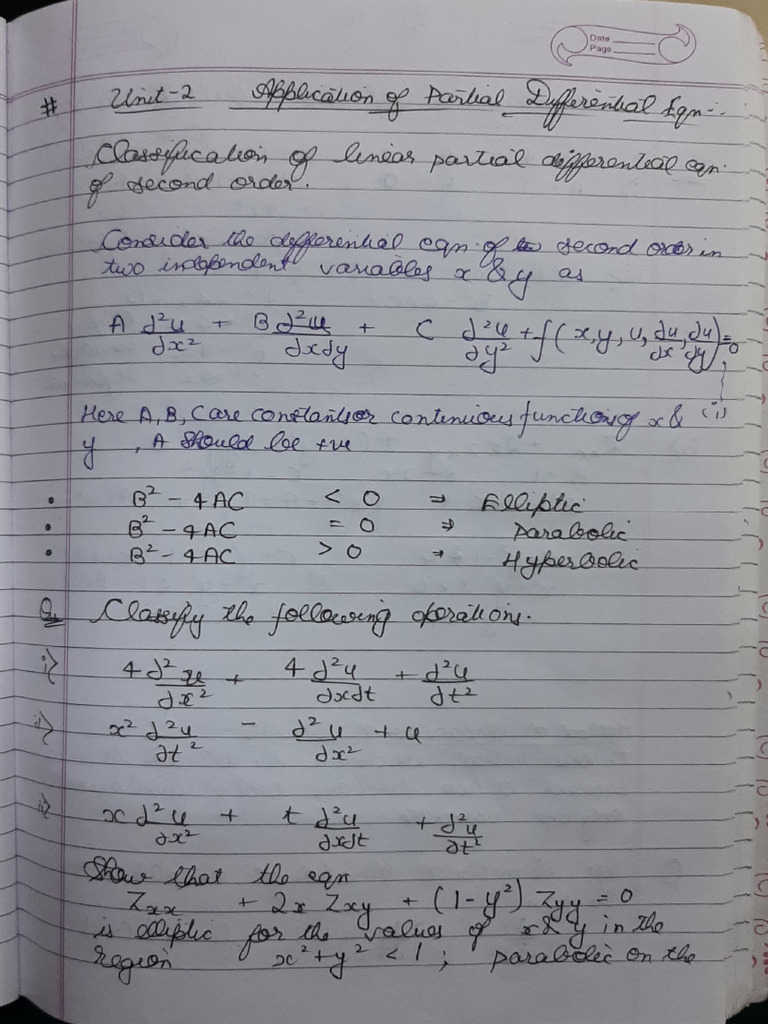 Date
Page
# Unit-2 Application of Partial Differential Eqn:-
Classification of linear partial differential eqn.
of second order.
Consider the differential eqn. of second order in
two independent variables x & y as
A ∂²u/∂x² + B ∂²u/∂x∂y + C ∂²u/∂y² + f(x,y,u,∂u/∂x,∂u/∂y)=0
(i)
Here A, B, C are constants or continuous functions of x &
y , A should be +ve
• B² - 4AC < 0 ⇒ Elliptic
• B² - 4AC = 0 ⇒ Parabolic
• B² - 4AC > 0 ⇒ Hyperbolic
Q. Classify the following operations.
i) 4 ∂²u/∂x² + 4 ∂²u/∂x∂t + ∂²u/∂t²
ii) x² ∂²u/∂t² - ∂²u/∂x² + u
ii) x ∂²u/∂x² + t ∂²u/∂x∂t + ∂²u/∂t²
Show that the eqn
Zxx + 2x Zxy + (1-y²) Zyy = 0
is elliptic for the values of x & y in the
region x²+y² < 1 ; parabolic on the